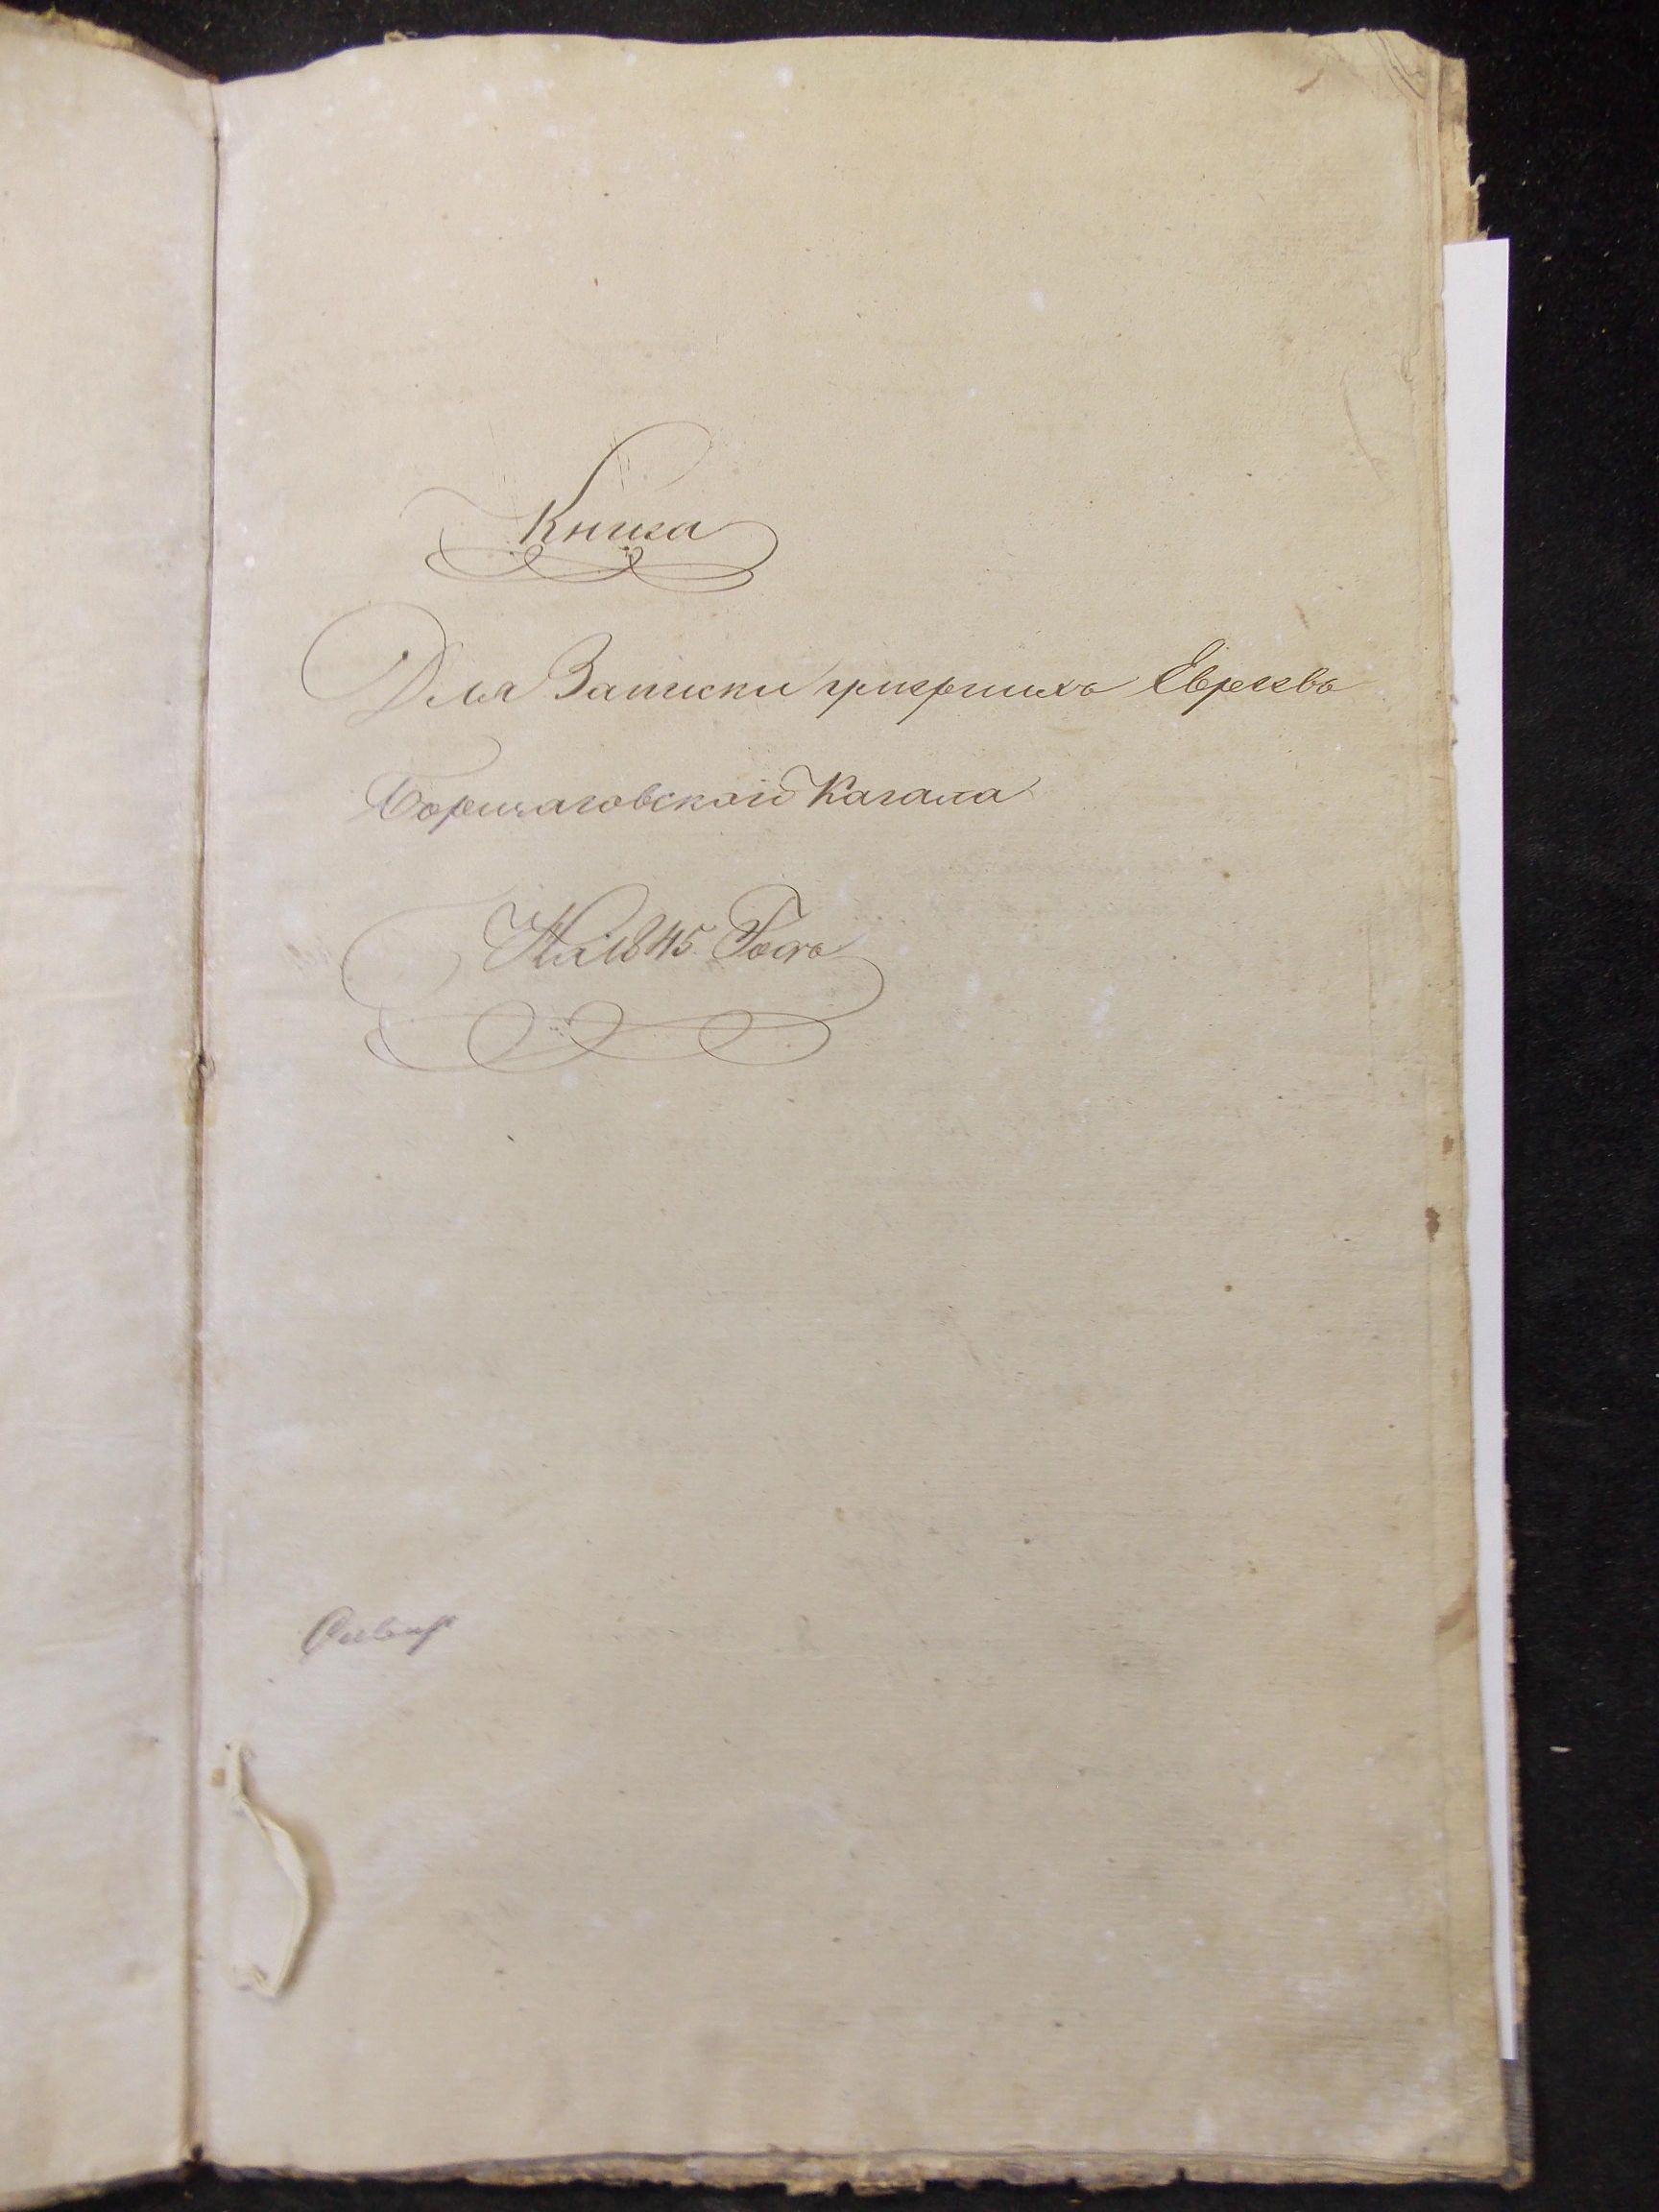 Книга
Для Записки умершихъ Евреевъ
Борщаговского Кагала
На 1845 Годъ